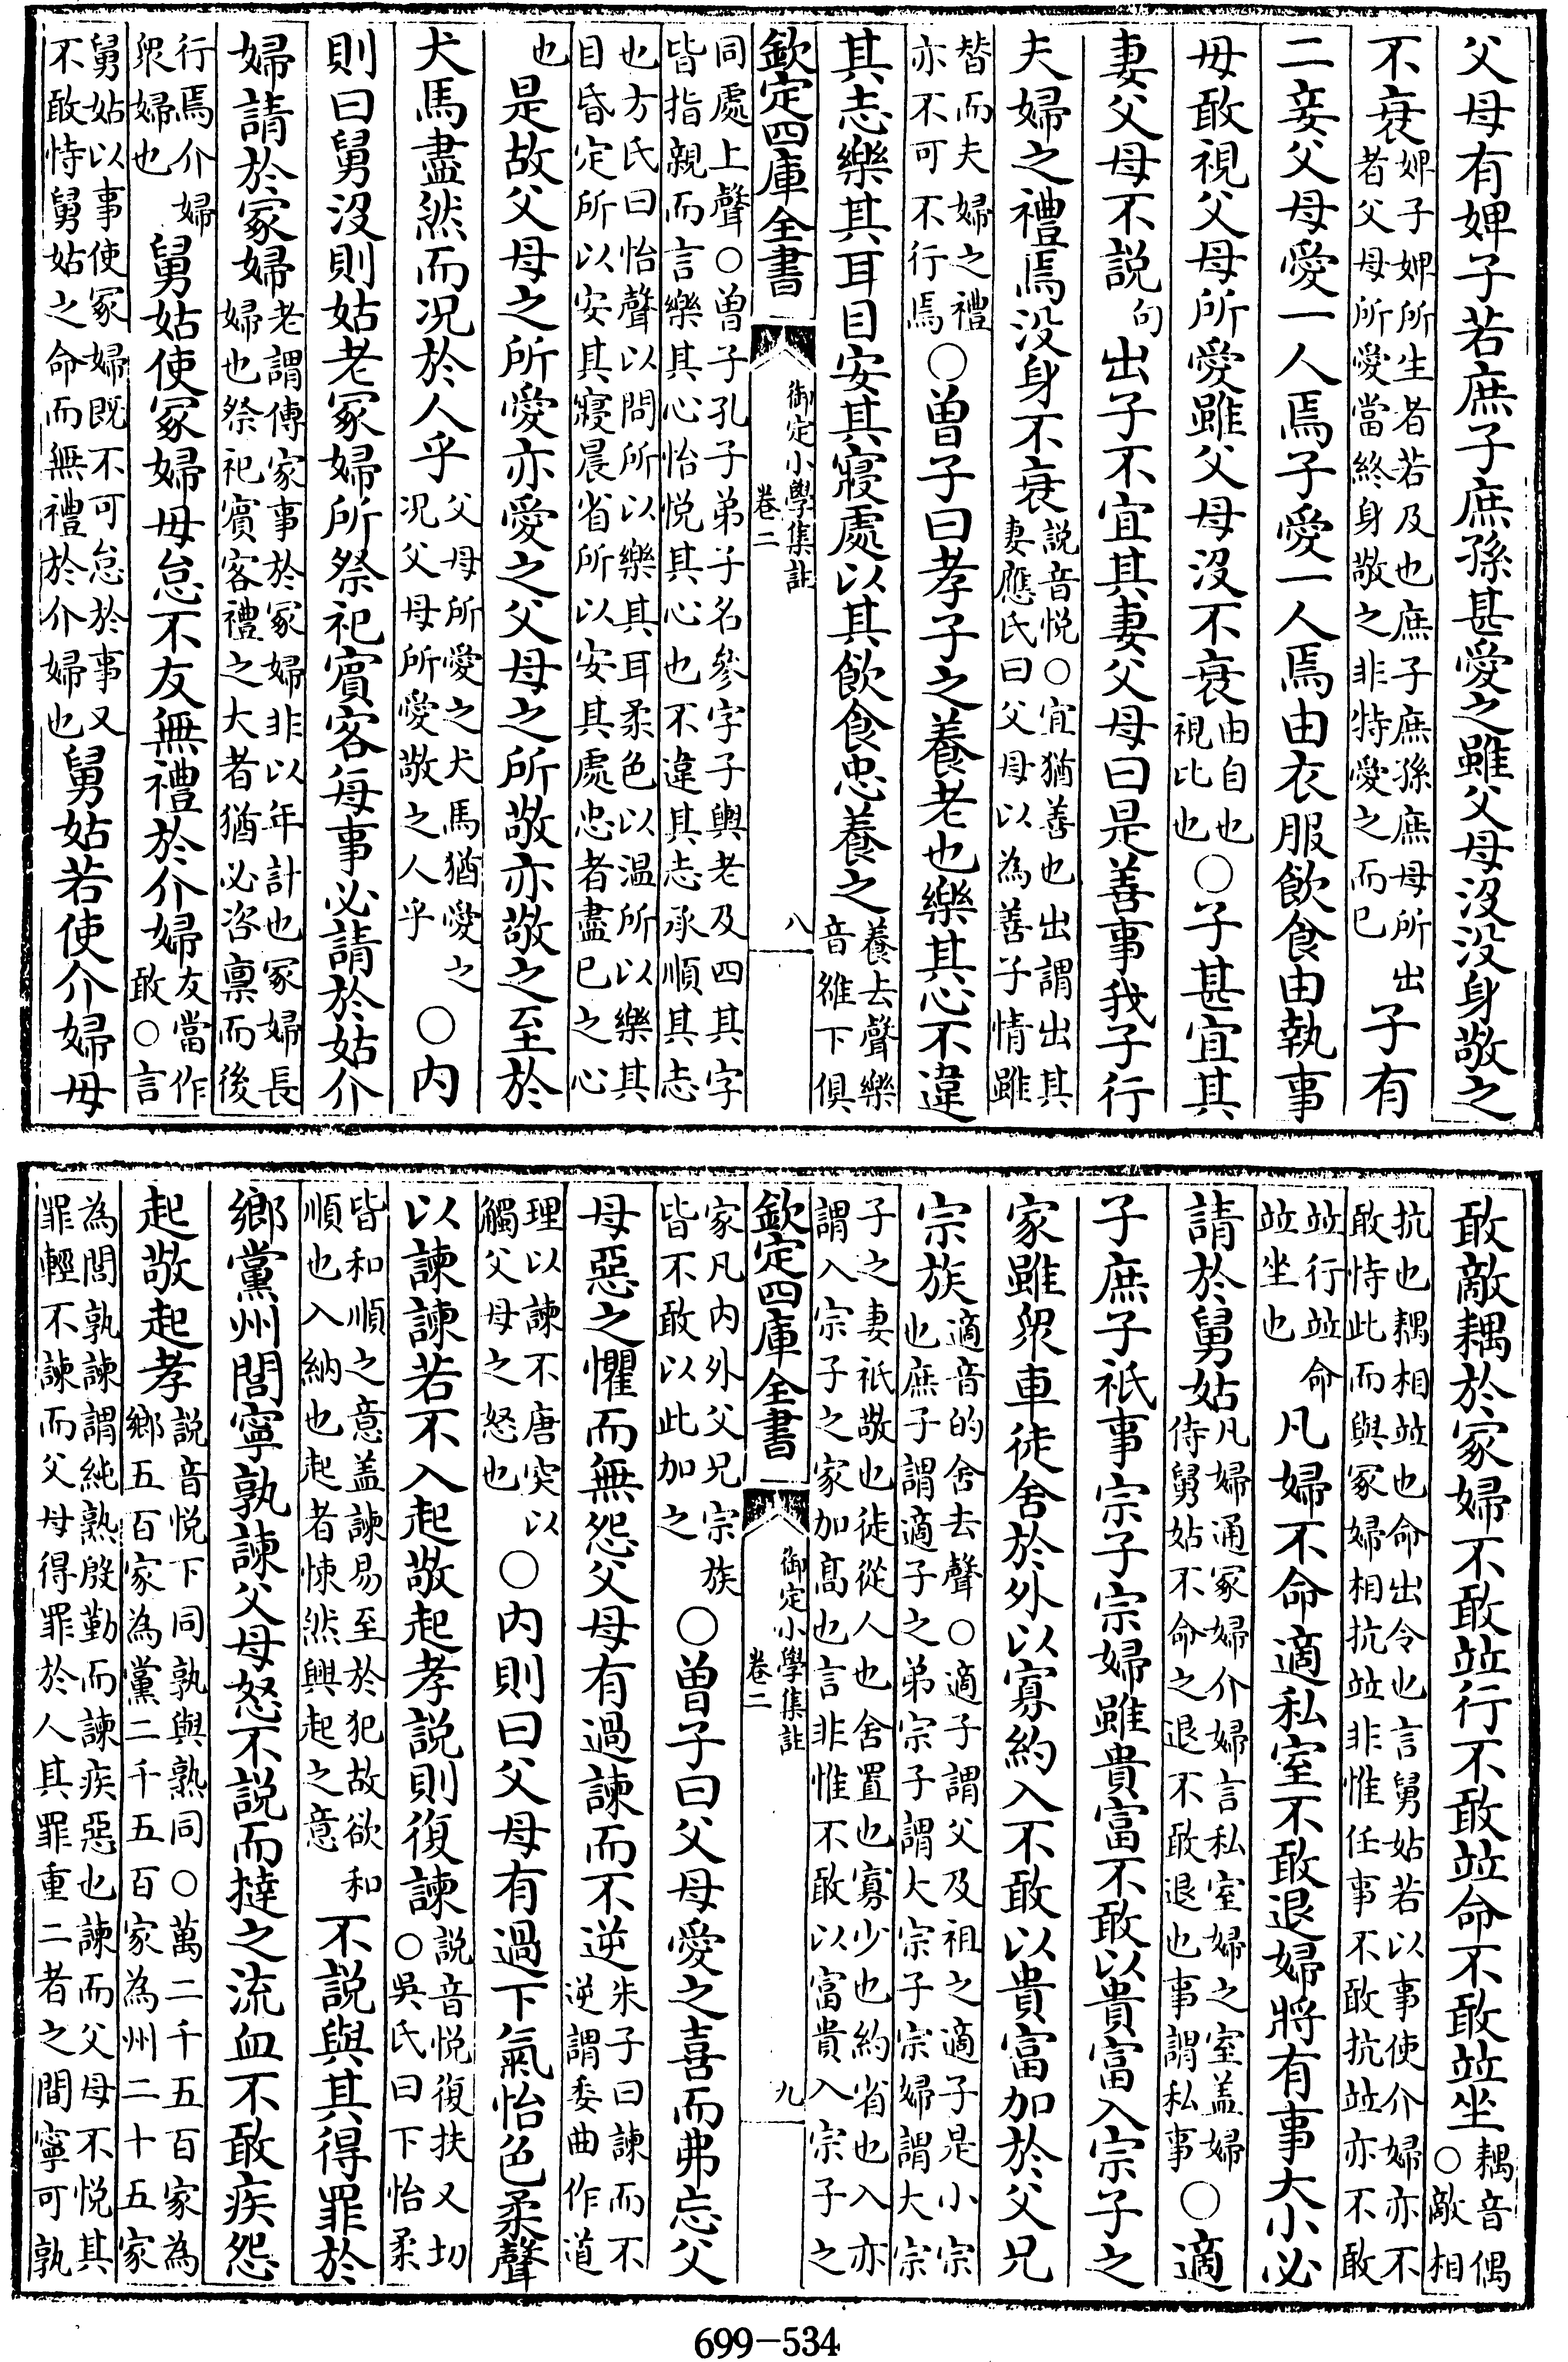 父母有婢子若庶子庶孫甚愛之雖父母没没身敬之
不衰婢子婢所生者若及也庶子庶孫庶母所出者父母所愛當終身敬之非特愛之而已子有
二妾父母愛一人焉子愛一人焉由衣服飲食由執事
毋敢視父母所愛雖父母没不衰由自也視比也○子甚宜其
妻父母不説句出子不宜其妻父母曰是善事我子行
夫婦之禮焉没身不衰説音悦○宜猶善也出謂出其妻應氏曰父母以為善子情雖
替而夫婦之禮亦不可不行焉○曽子曰孝子之養老也樂其心不違
其志樂其耳目安其寢處以其飲食忠養之養去聲樂音雒下俱
欽定四庫全書
御定小學集註
卷二
八
同處上聲○曽子孔子弟子名參字子輿老及四其字皆指親而言樂其心怡悦其心也不違其志承順其志
也方氏曰怡聲以問所以樂其耳柔色以温所以樂其目昏定所以安其寢晨省所以安其處忠者盡已之心
也是故父母之所愛亦愛之父母之所敬亦敬之至於
犬馬盡然而况於人乎父母所愛之犬馬猶愛之况父母所愛敬之人乎○内
則曰舅没則姑老冢婦所祭祀賓客每事必請於姑介
婦請於冢婦老謂傳家事於冢婦非以年計也冢婦長婦也祭祀賓客禮之大者猶必咨禀而後
行焉介婦衆婦也舅姑使冢婦毋怠不友無禮於介婦友當作敢○言
舅姑以事使冢婦既不可怠於事又不敢恃舅姑之命而無禮於介婦也舅姑若使介婦毋
敢敵耦於冢婦不敢竝行不敢竝命不敢竝坐耦音偶○敵相
抗也耦相竝也命出令也言舅姑若以事使介婦亦不敢恃此而與冢婦相抗竝非惟任事不敢抗竝亦不敢
竝行竝命竝坐也凡婦不命適私室不敢退婦將有事大小必
請於舅姑凡婦通冢婦介婦言私室婦之室盖婦侍舅姑不命之退不敢退也事謂私事○適
子庶子祇事宗子宗婦雖貴富不敢以貴富入宗子之
家雖衆車徒舍於外以寡約入不敢以貴富加於父兄
宗族適音的舍去聲○適子謂父及祖之適子是小宗也庶子謂適子之弟宗子謂大宗子宗婦謂大宗
子之妻祇敬也徒從人也舍置也寡少也約省也入亦謂入宗子之家加髙也言非惟不敢以富貴入宗子之
欽定四庫全書
御定小學集註
卷二
九
家凡内外父兄宗族皆不敢以此加之○曽子曰父母愛之喜而弗忘父
母惡之懼而無怨父母有過諫而不逆朱子曰諫而不逆謂委曲作道
理以諫不唐突以觸父母之怒也○内則曰父母有過下氣怡色柔聲
以諫諫若不入起敬起孝説則復諫説音悦復扶又切○吳氏曰下怡柔
皆和順之意盖諫易至於犯故欲和順也入納也起者悚然興起之意不説與其得罪於
鄉黨州閭寧孰諫父母怒不説而撻之流血不敢疾怨
起敬起孝説音悦下同孰與熟同○萬二千五百家為鄉五百家為黨二千五百家為州二十五家
為閭孰諫謂純熟殷勤而諫疾惡也諫而父母不悦其罪輕不諫而父母得罪於人其罪重二者之間寧可孰
699-534